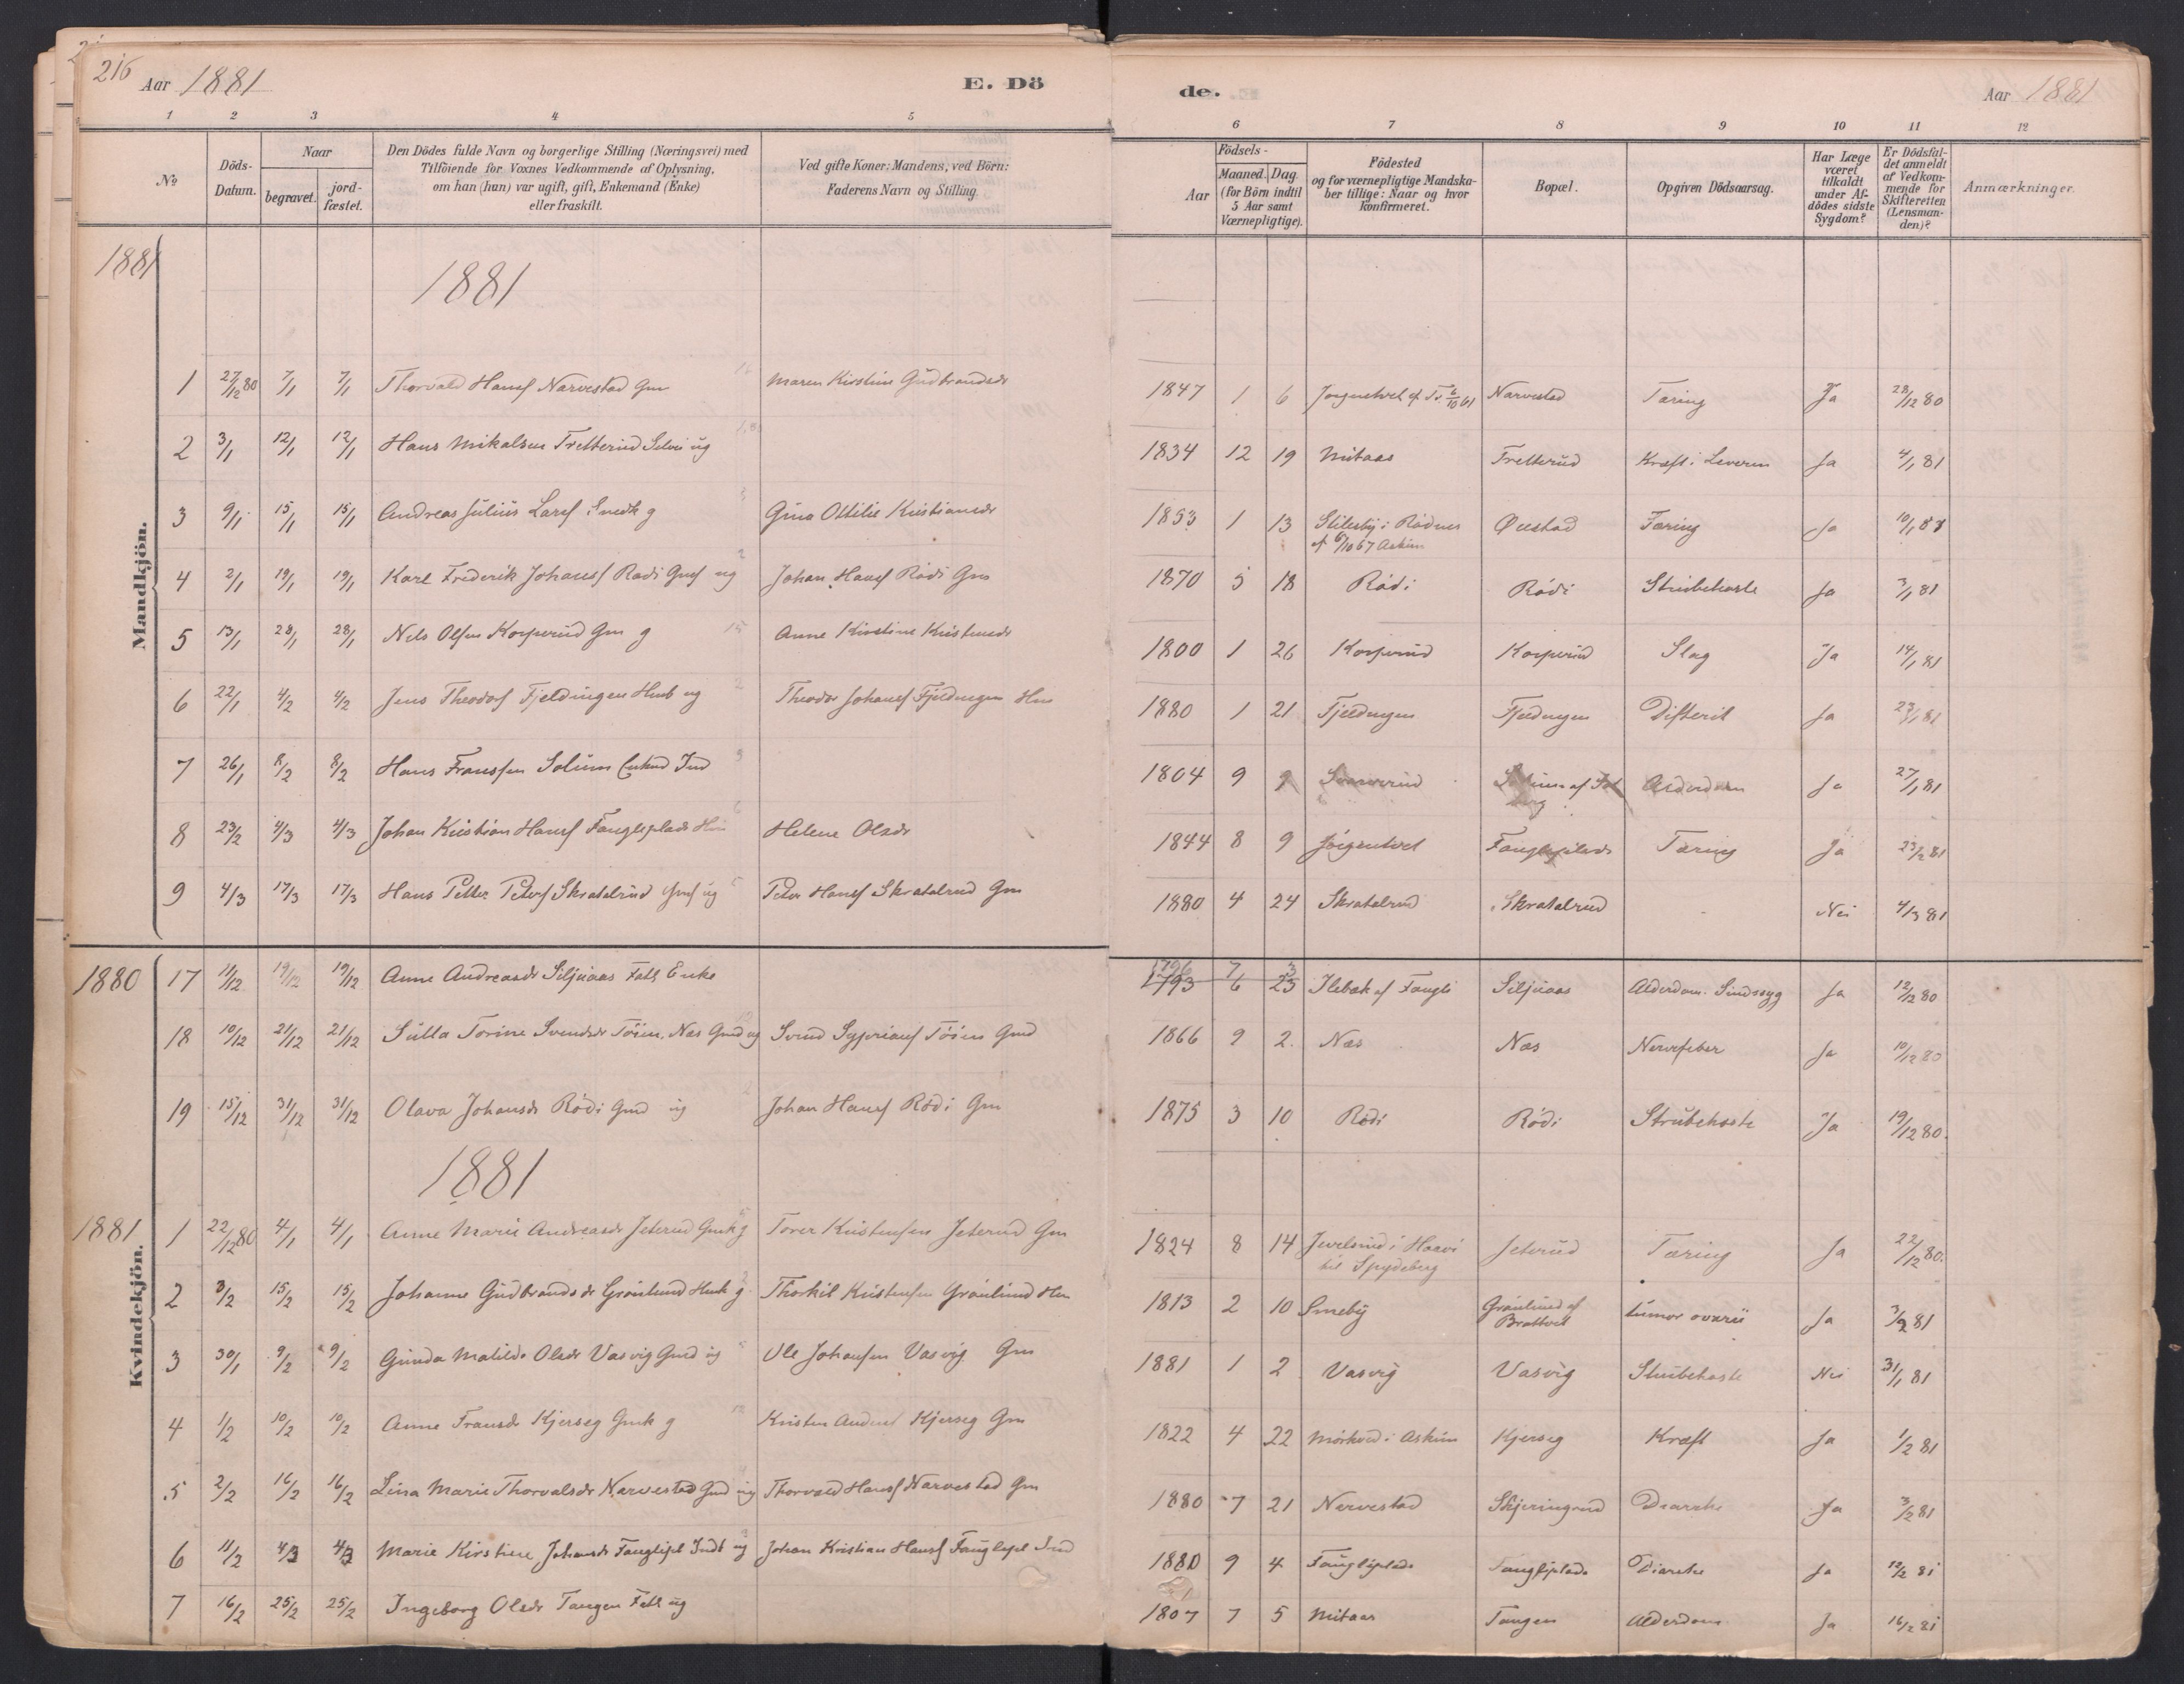 216 Aar 1881 E. Dö
de. Aar 1881
1 2 3 4 5
6 7 8 9 10 11 12
No
Döds-
Datum.
Naar
begravet.
jord-
fæstet.
Den Dödes fulde Navn og borgerlige Stilling (Næringsvei) med
Tilföiende for Voxnes Vedkommende af Oplysning,
om han (hun) var ugift, gift, Enkemand (Enke)
eller fraskilt.
Ved gifte Koner: Mandens, ved Börn:
Faderens Navn og Stilling.
Födsels-
Aar
Maaned. Dag.
(for Börn indtil
5 Aar samt
Værnepligtige).
Födested
og for værnepligtige Mandska-
ber tillige: Naar og hvor
konfirmeret.
Bopæl.
Opgiven Dödsaarsag.
Har Læge
været
tilkaldt
under Af-
dödes sidste
Sygdom?
Er Dödsfal-
det anmeldt
af Vedkom-
mende for
Skifteretten
(Lensman-
den)?
Anmærkninger.
1881
1881
Mandkjön.
1 27/12 80 7/1 7/1 Thorvald Hansf Narvestad Gm Maren Kirstine Gudbrandsdr 1847 1 6 6/10 61 Narvestad Tæring Ja 28/12 80
2 3/1 12/1 12/1 Hans Mikalsen Fretterud Selvei ug 1834 12 19 Mitaas Fretterud Kræft i Leveren Ja 4/1 81
3 9/1 15/1 15/1 Andreas Julius Larsf Smedk g Gina Ottilie Kristiansdr 1853 1 13 i Rödnes Øustad Tæring Ja 10/1 81
6/10 67 Askim
4 2/1 19/1 19/1 Karl Frederik Johansf Rödi Gmsf ug Johan Hansf Rödi Gm 1870 5 18 Rödi Rödi Strubehoste Ja 3/1 81
5 13/1 28/1 28/1 Nils Olsen Korperud Gm g Anne Kirstine Kristensdr 1800 1 26 Korperud Korperud Slag Ja 14/1 81
6 22/1 4/2 4/2 Jens Theodorf Fjeldingen Husb ug Theodor Johansf Fjeldingen Hm 1880 1 21 Fjeldingen Fjeldingen Difterit Ja 23/1 81
7 26/1 8/2 8/2 Hans Franssen Solium Enkmd Ind 1804 9 9 Alderdom Ja 27/1 81
8 23/2 4/3 4/3 Johan Kristian Hansf Fangliplads Helene Olsdr 1844 8 9 Jörgentvet Fangliplads Tæring Ja 23/2 81
9 4/3 17/3 17/3 Hans Petter Petersf Skratalrud Gmsf ug Peter Hansf Skratalrud Gm 1880 4 24 Skratalrud Skratalrud - Nei 4/3 81
1880 17 11/12 19/12 19/12 Anne Andreasdr Siljuaas Fatt Enke 1796 7 3
1793 6 23 Ilebæk af Fangli Siljuaas Alderdom. Sindssyg Ja 12/12 80
18 10/12 21/12 21/12 Julla Torine Svendsdr Töien, Næs Gmd ug Svend Sypriansf Töien Gmd 1866 9 2. Næs Næs Nervefeber Ja 10/12 80
19 15/12 31/12 31/12 Olava Johansdr Rödi Gmd ug Johan Hansf Rödi Gm 1875 3 10 Rödi Rödi Strubehoste Ja 19/12 80.
1881
Kvindekjön.
1881 1 22/12 80 4/1 4/1 Anne Marie Andreasdr Jeterud Gmk g Torer Kristensen Jeterud Gm 1824 8 14 Juvelsrud i Haavi Jeterud Tæring Ja 22/12 80.
til Spydeberg
2 3/2 15/2 15/2 Johanne Gudbrandsdr Grönlund Hmk g Thorkil Kristensen Grönlund Hm 1813 2 10 Smeby Grönlund af Brattvet tumor ovarii Ja 3/2 81
3 30/1 9/2 9/2 Gunda Matilde Olsdr Vasvig Gmd ug Ole Johansen Vasvig Gm 1881 1 2 Vasvig Vasvig Strubehoste Nei 31/1 81
4 1/2 10/2 10/2 Anne Fransdr Kjerseg Gmk g Kristen Andersf Kjerseg Gm 1822 4 22 Mörkved i Askim Kjerseg Kræft Ja 1/2 81
5 2/2 16/2 16/2 Lina Marie Thorvalsdr Narvestad Gmd ug Thorvald Hansf Narvestad Gm 1880 7 21 Nervestad Skjeringrud Diarrhe Ja 3/2 81
6 11/2 4/3 4/3 Marie Kirstine Johansdr Fanglipl Indt ug Johan Kristian Hansf Fanglipl Ind 1880 9 4 Fangliplads Fangliplads Diarrhe Ja 12/2 81
7 16/2 25/2 25/2 Ingeborg Olsdr Tangen Fatt ug 1807 7 5 Mitaas Tangen Alderdom Ja 16/2 81